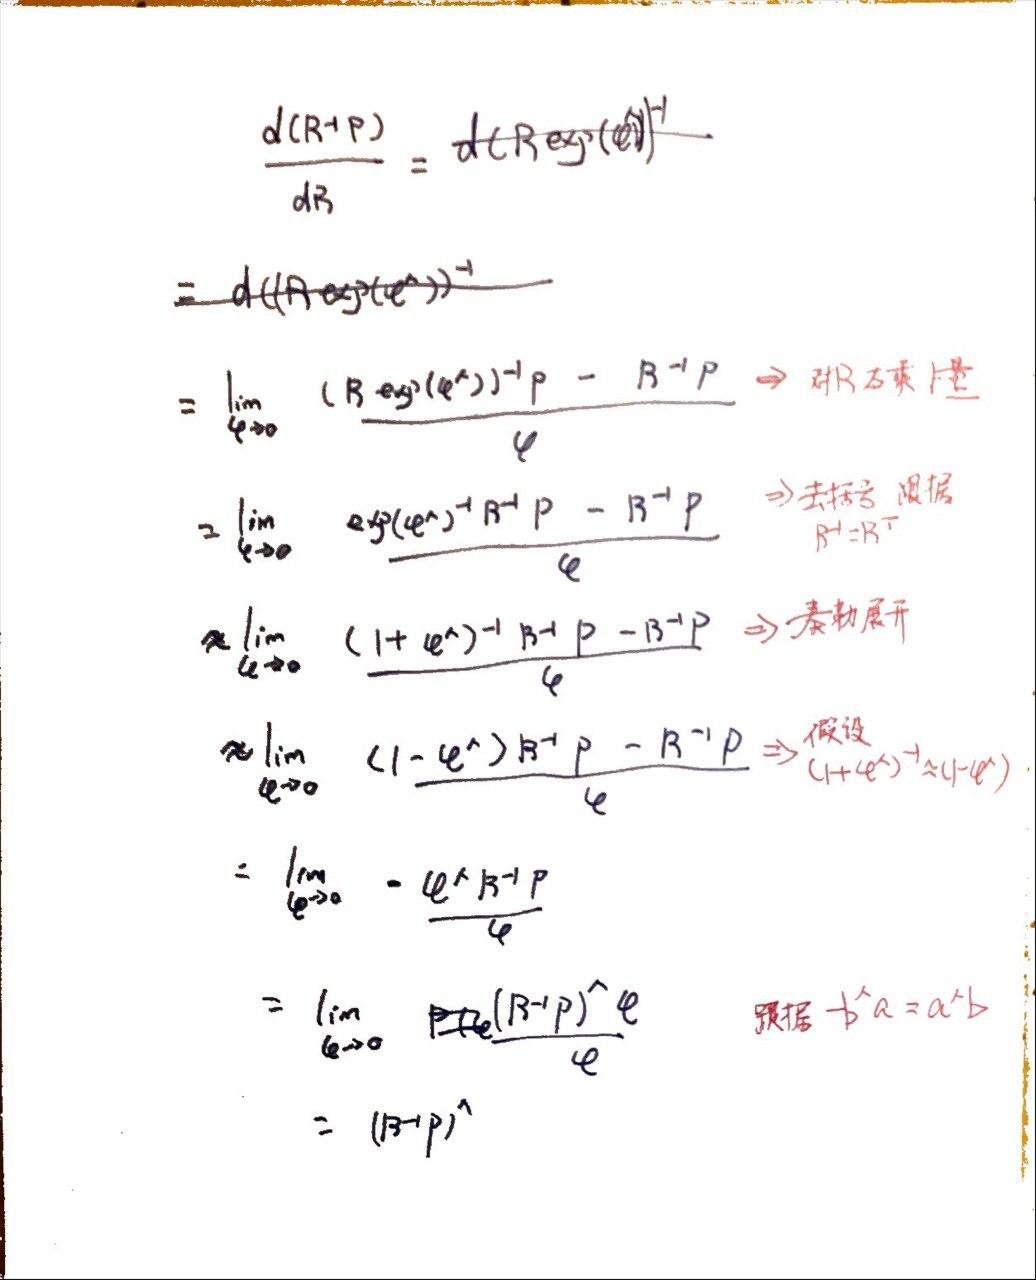 d(R⁻¹P) / dR = d(R exp(φ^))⁻¹
= d((R exp(φ^))⁻¹
= lim φ→0 ((R exp(φ^))⁻¹P - R⁻¹P) / φ ⇒ 对R右乘
= lim φ→0 (exp(φ^)⁻¹R⁻¹P - R⁻¹P) / φ ⇒ 去括号 跟据 R⁻¹=Rᵀ
≈ lim φ→0 ((1+φ^)⁻¹R⁻¹P - R⁻¹P) / φ ⇒ 泰勒展开
≈ lim φ→0 ((1-φ^)R⁻¹P - R⁻¹P) / φ ⇒ 假设 (1+φ^)⁻¹≈(1-φ^)
= lim φ→0 - φ^R⁻¹P / φ
= lim φ→0 (R⁻¹P)^φ / φ 跟据 -b^a = a^b
= (R⁻¹P)^